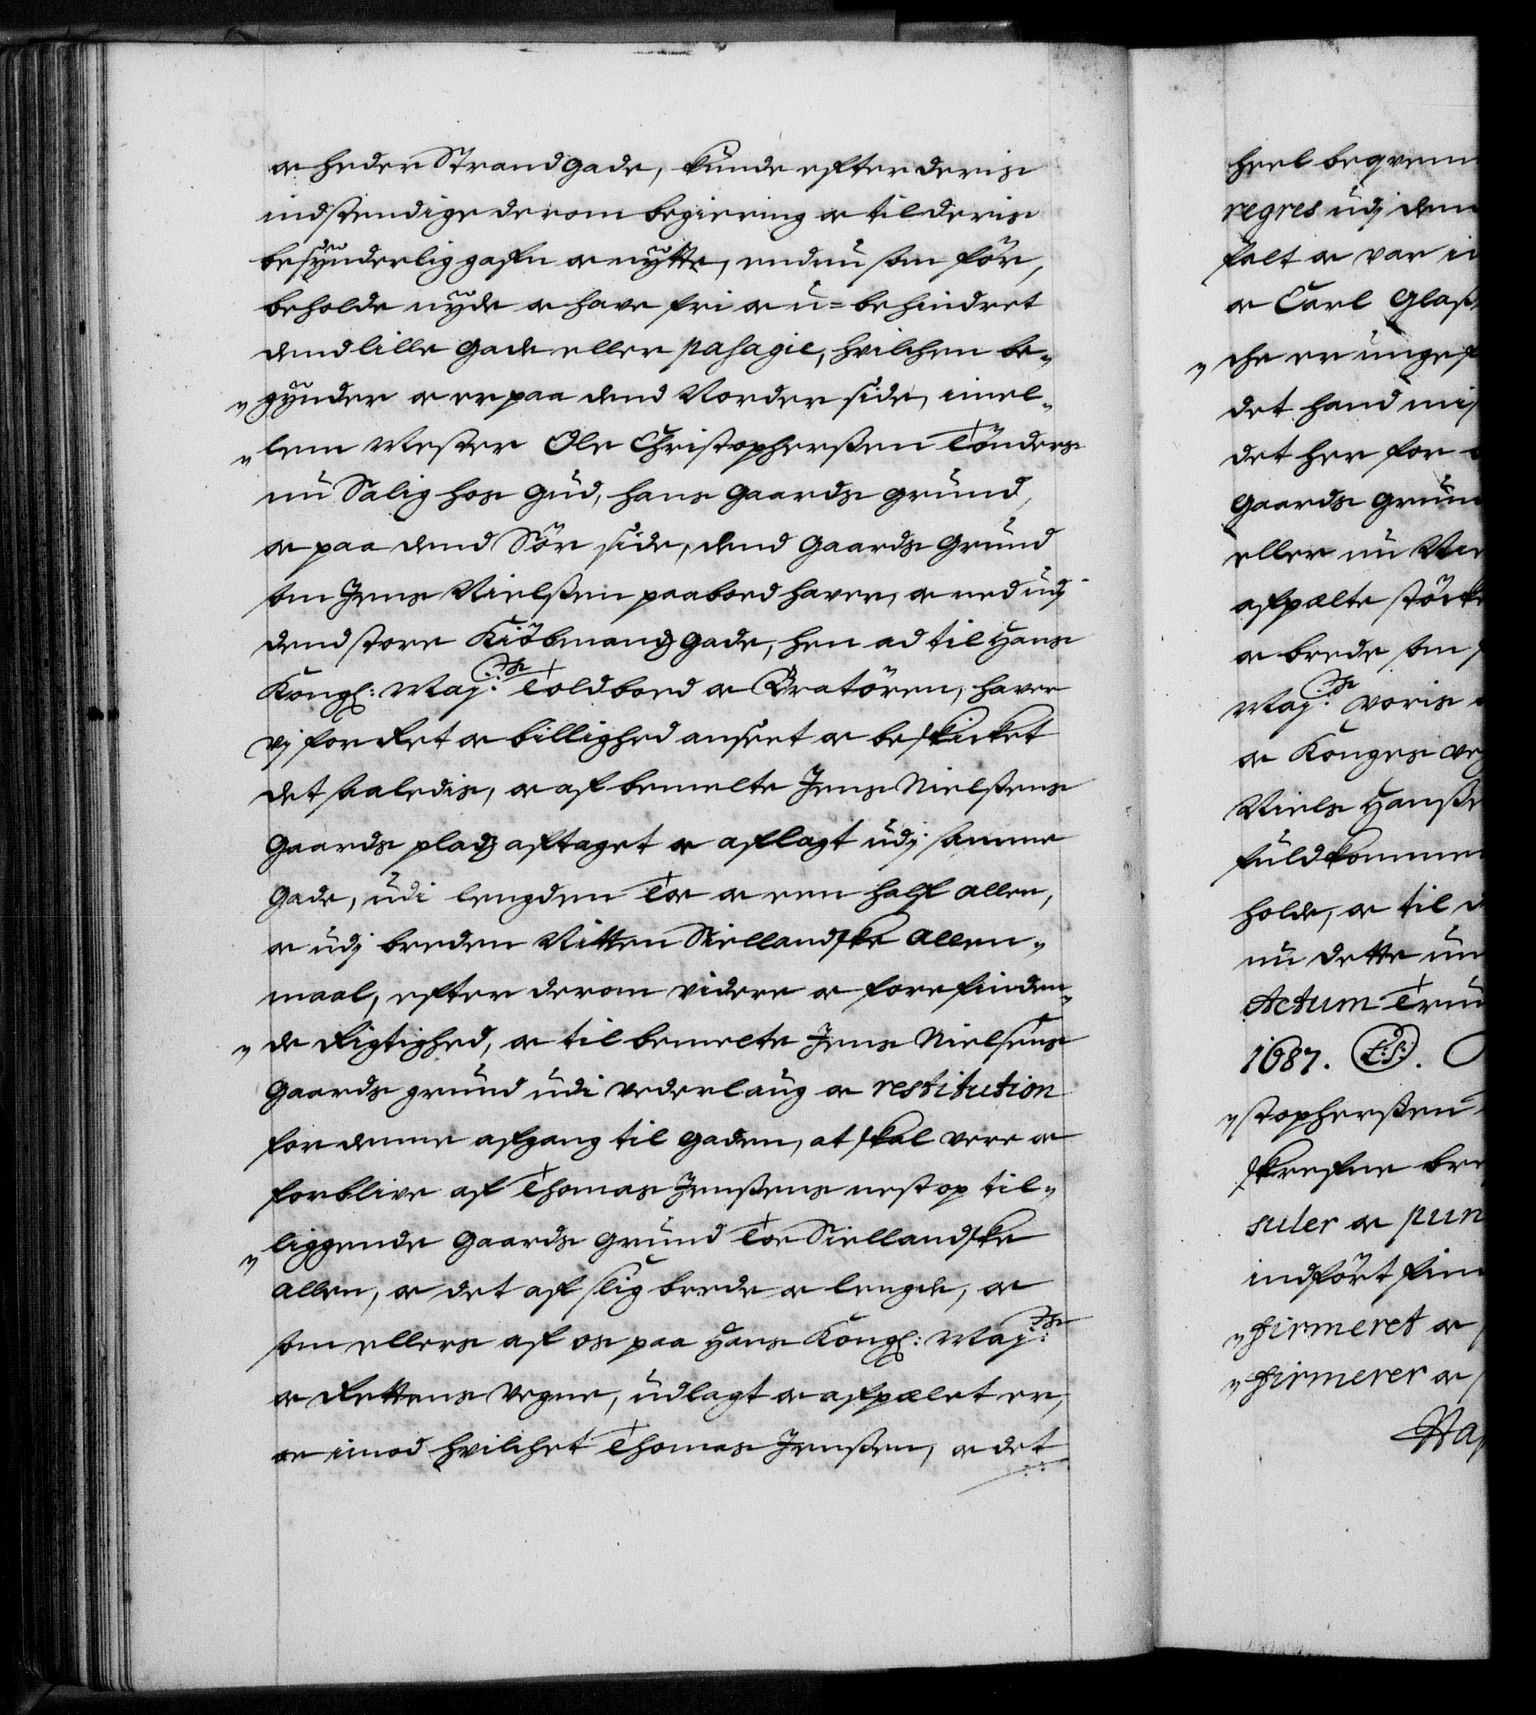 og heder Strandgade, kunde efter deris
indstendige derom begiering og til deris
besÿnderlig gafn og nÿtte, endnu som för,
beholde nÿde og have fri og u=behindret
dend lille gade eller passagie, hvilchen be„
„gÿnder og er paa dend Norder side, imel„
„lem Mester Ole Christopherßen Tönders
nu Salig hos Gud, hans gaards grund,
og paa dend Sör side, dend gaards grund
som Jens Nielßen paaboed haver, og ned udj
dend store Kiöbmandz gade, hen ad til Hans
Kongl: Maj:ts Toldboed og Bratören, haver
vj for Ret og billighed anseet og beskicket
det saaledis, og af bemelte Jens Nielsens
gaards pladz aftaget og aflagt udj samme
gade, udi lengden Toe og een half allen,
og udj breden Nitten Siellandske allen„
maal, efter derom videre og forefinden„
„de Rigtighed, og til bemelte Jens Nielsens
gaards grund udi vederlaug og restitution
for denne afgang til gaden, at skal vere og
forblive af Thomas Jenßens nest op til„
„liggende gaards grund Toe Siellandske
allen, og det af slig brede og lengde, og
som ellers af os paa Hans Kongl: Maj:ts
og Rettens vegne, udlagt og afpælet er,
og imod hvilchet Thomas Jenßen, og det
heel beqvem
regres udj dem
falt og var i
og Carl Glaß
„che er ungef
det hand mi
det her for
gaards grun
eller nu
afpælte störcke
og brede som
Maj:ts voris
og Konges ve
Niels Hanße
fuldkommen
holde, og til d
nu dette un
Actum Trun
1687. (L:S:).
„stopherßen
skrefne bre
suler og pun
indfört fin
„firmeret og
„firmerer og